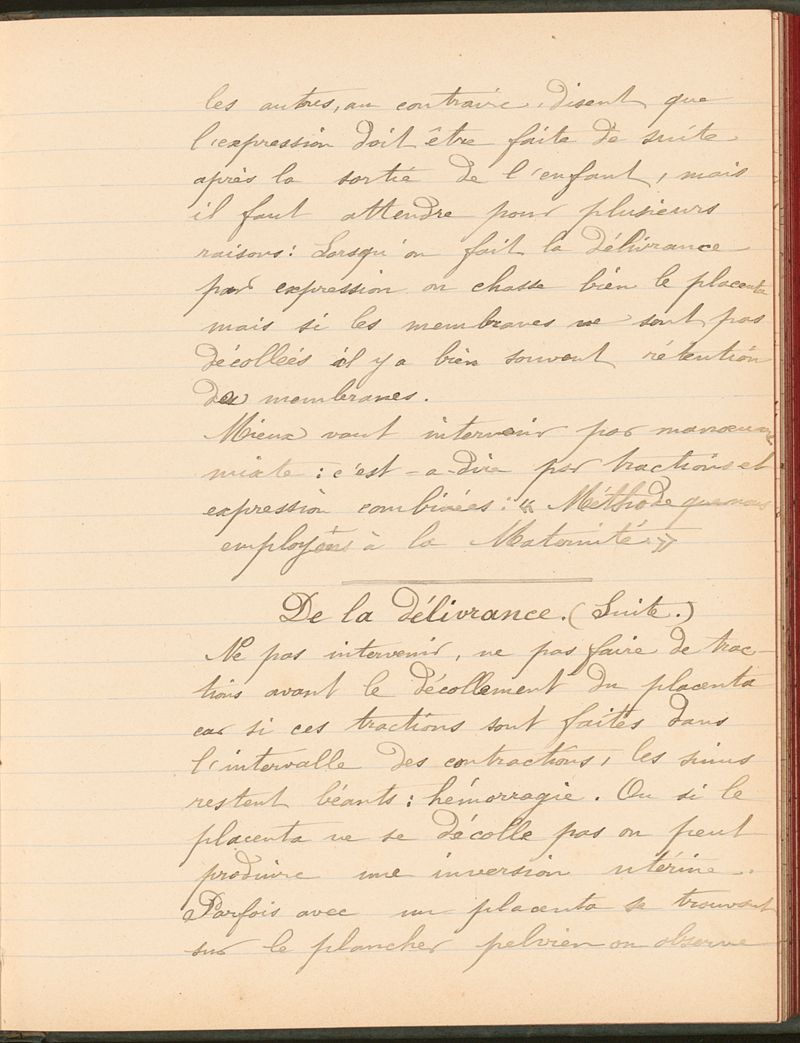 les autres, au contraire, disent que
l'expression doit être faite de suite
après la sortie de l'enfant, mais
il faut attendre pour plusieurs
raisons : Lorsqu'on fait la délivrance
par expression on chasse bien le placenta
mais si les membranes ne sont pas
décollées il y a bien souvent rétention
de membranes.
Mieux vaut intervenir par manœuvre
mixte : c'est-a-dire par tractions et
expression combinées : « Méthode que nous
employons à la Maternité. »
De la délivrance. (Suite.)
Ne pas intervenir, ne pas faire de trac-
tions avant le décollement du placenta
car si ces tractions sont faites dans
l'intervalle des contractions, les sinus
restent béants : hémorragie. Ou si le
placenta ne se décolle pas on peut
produire une inversion utérine.
Parfois avec un placenta se trouvant
sur le plancher pelvien on observe